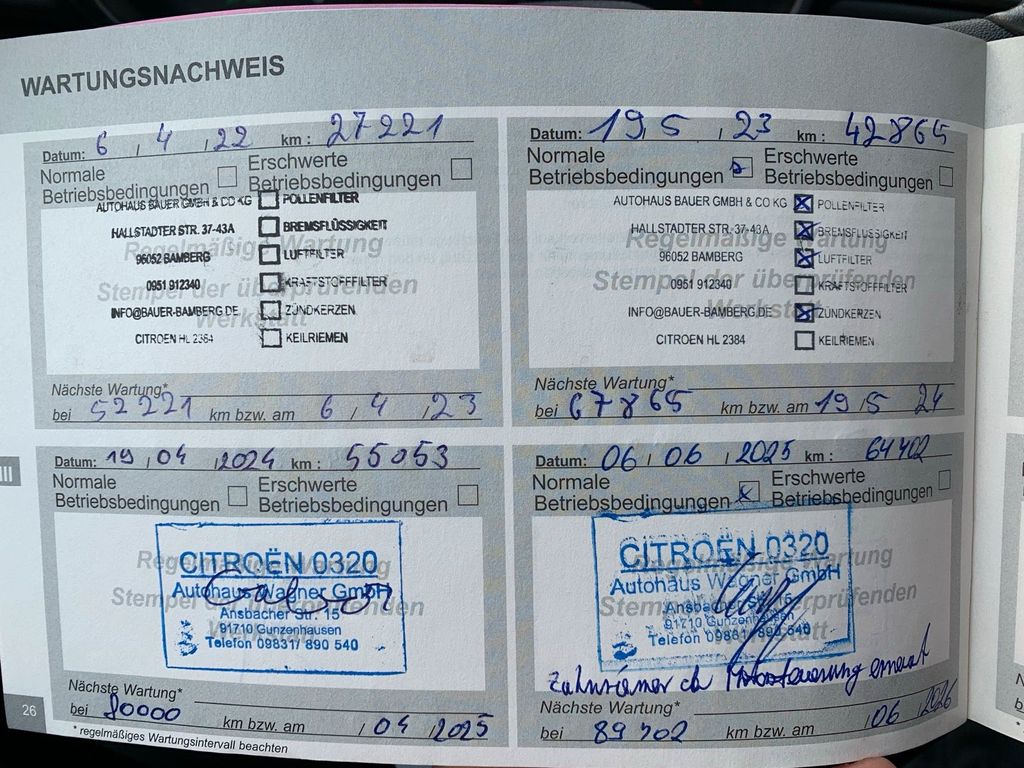 WARTUNGSNACHWEIS
Datum: 6 / 4 / 22 km: 27221
Normale Betriebsbedingungen
Erschwerte Betriebsbedingungen
Regelmäßige Wartung
Stempel der überprüfenden
Werkstatt
AUTOHAUS BAUER GMBH & CO KG
HALLSTADTER STR. 37-43A
96052 BAMBERG
0951 912340
INFO@BAUER-BAMBERG.DE
CITROEN HL 2384
POLLENFILTER
BREMSFLÜSSIGKEIT
LUFTFILTER
KRAFTSTOFFFILTER
ZÜNDKERZEN
KEILRIEMEN
Nächste Wartung*
bei 52221 km bzw. am 6 / 4 / 23
Datum: 19, 5 , 23 km: 42865
Normale Betriebsbedingungen x
Erschwerte Betriebsbedingungen
Regelmäßige Wartung
Stempel der überprüfenden
Werkstatt
AUTOHAUS BAUER GMBH & CO KG
HALLSTADTER STR. 37-43A
96052 BAMBERG
0951 912340
INFO@BAUER-BAMBERG.DE
CITROEN HL 2384
POLLENFILTER
BREMSFLÜSSIGKEIT
LUFTFILTER
KRAFTSTOFFFILTER
ZÜNDKERZEN
KEILRIEMEN
Nächste Wartung*
bei 67865 km bzw. am 19 / 5 24
Datum: 19 / 04 / 2024 km: 55053
Normale Betriebsbedingungen
Erschwerte Betriebsbedingungen
Regelmäßige Wartung
Stempel der überprüfenden
Werkstatt
CITROËN 0320
Autohaus Wagner GmbH
Ansbacher Str. 15
91710 Gunzenhausen
Telefon 09831/ 890 540
Nächste Wartung*
bei 80000 km bzw. am / 04 / 2025
* regelmäßiges Wartungsintervall beachten
Datum: 06 / 06 / 2025 km: 64402
Normale Betriebsbedingungen x
Erschwerte Betriebsbedingungen
Regelmäßige Wartung
Stempel der überprüfenden
Werkstatt
CITROËN 0320
Autohaus Wagner GmbH
Ansbacher Str. 15
91710 Gunzenhausen
Telefon 09831/ 890 540
Zahnriemen erneut
Nächste Wartung*
bei 89402 km bzw. am / 06 / 2026
26
III